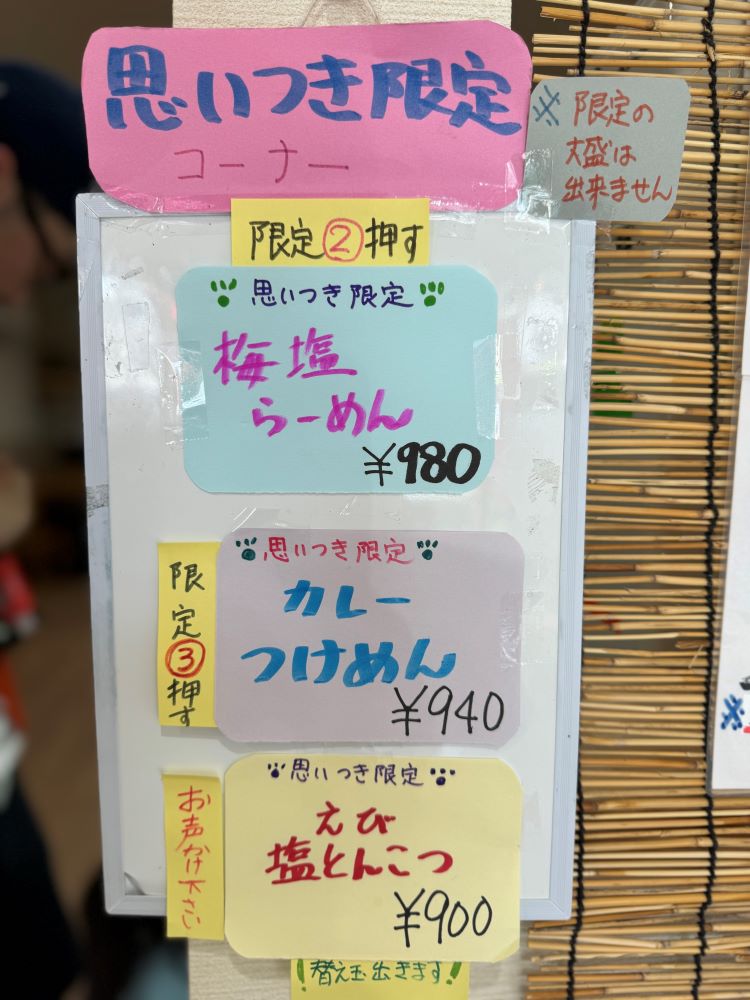 思いつき限定
コーナー
※限定の
大盛は
出来ません
限定②押す
思いつき限定
梅塩
らーめん
¥980
限定③押す
思いつき限定
カレー
つけめん
¥940
お声かけ下さい
思いつき限定
えび
塩とんこつ
¥900
替え玉出きます!
※